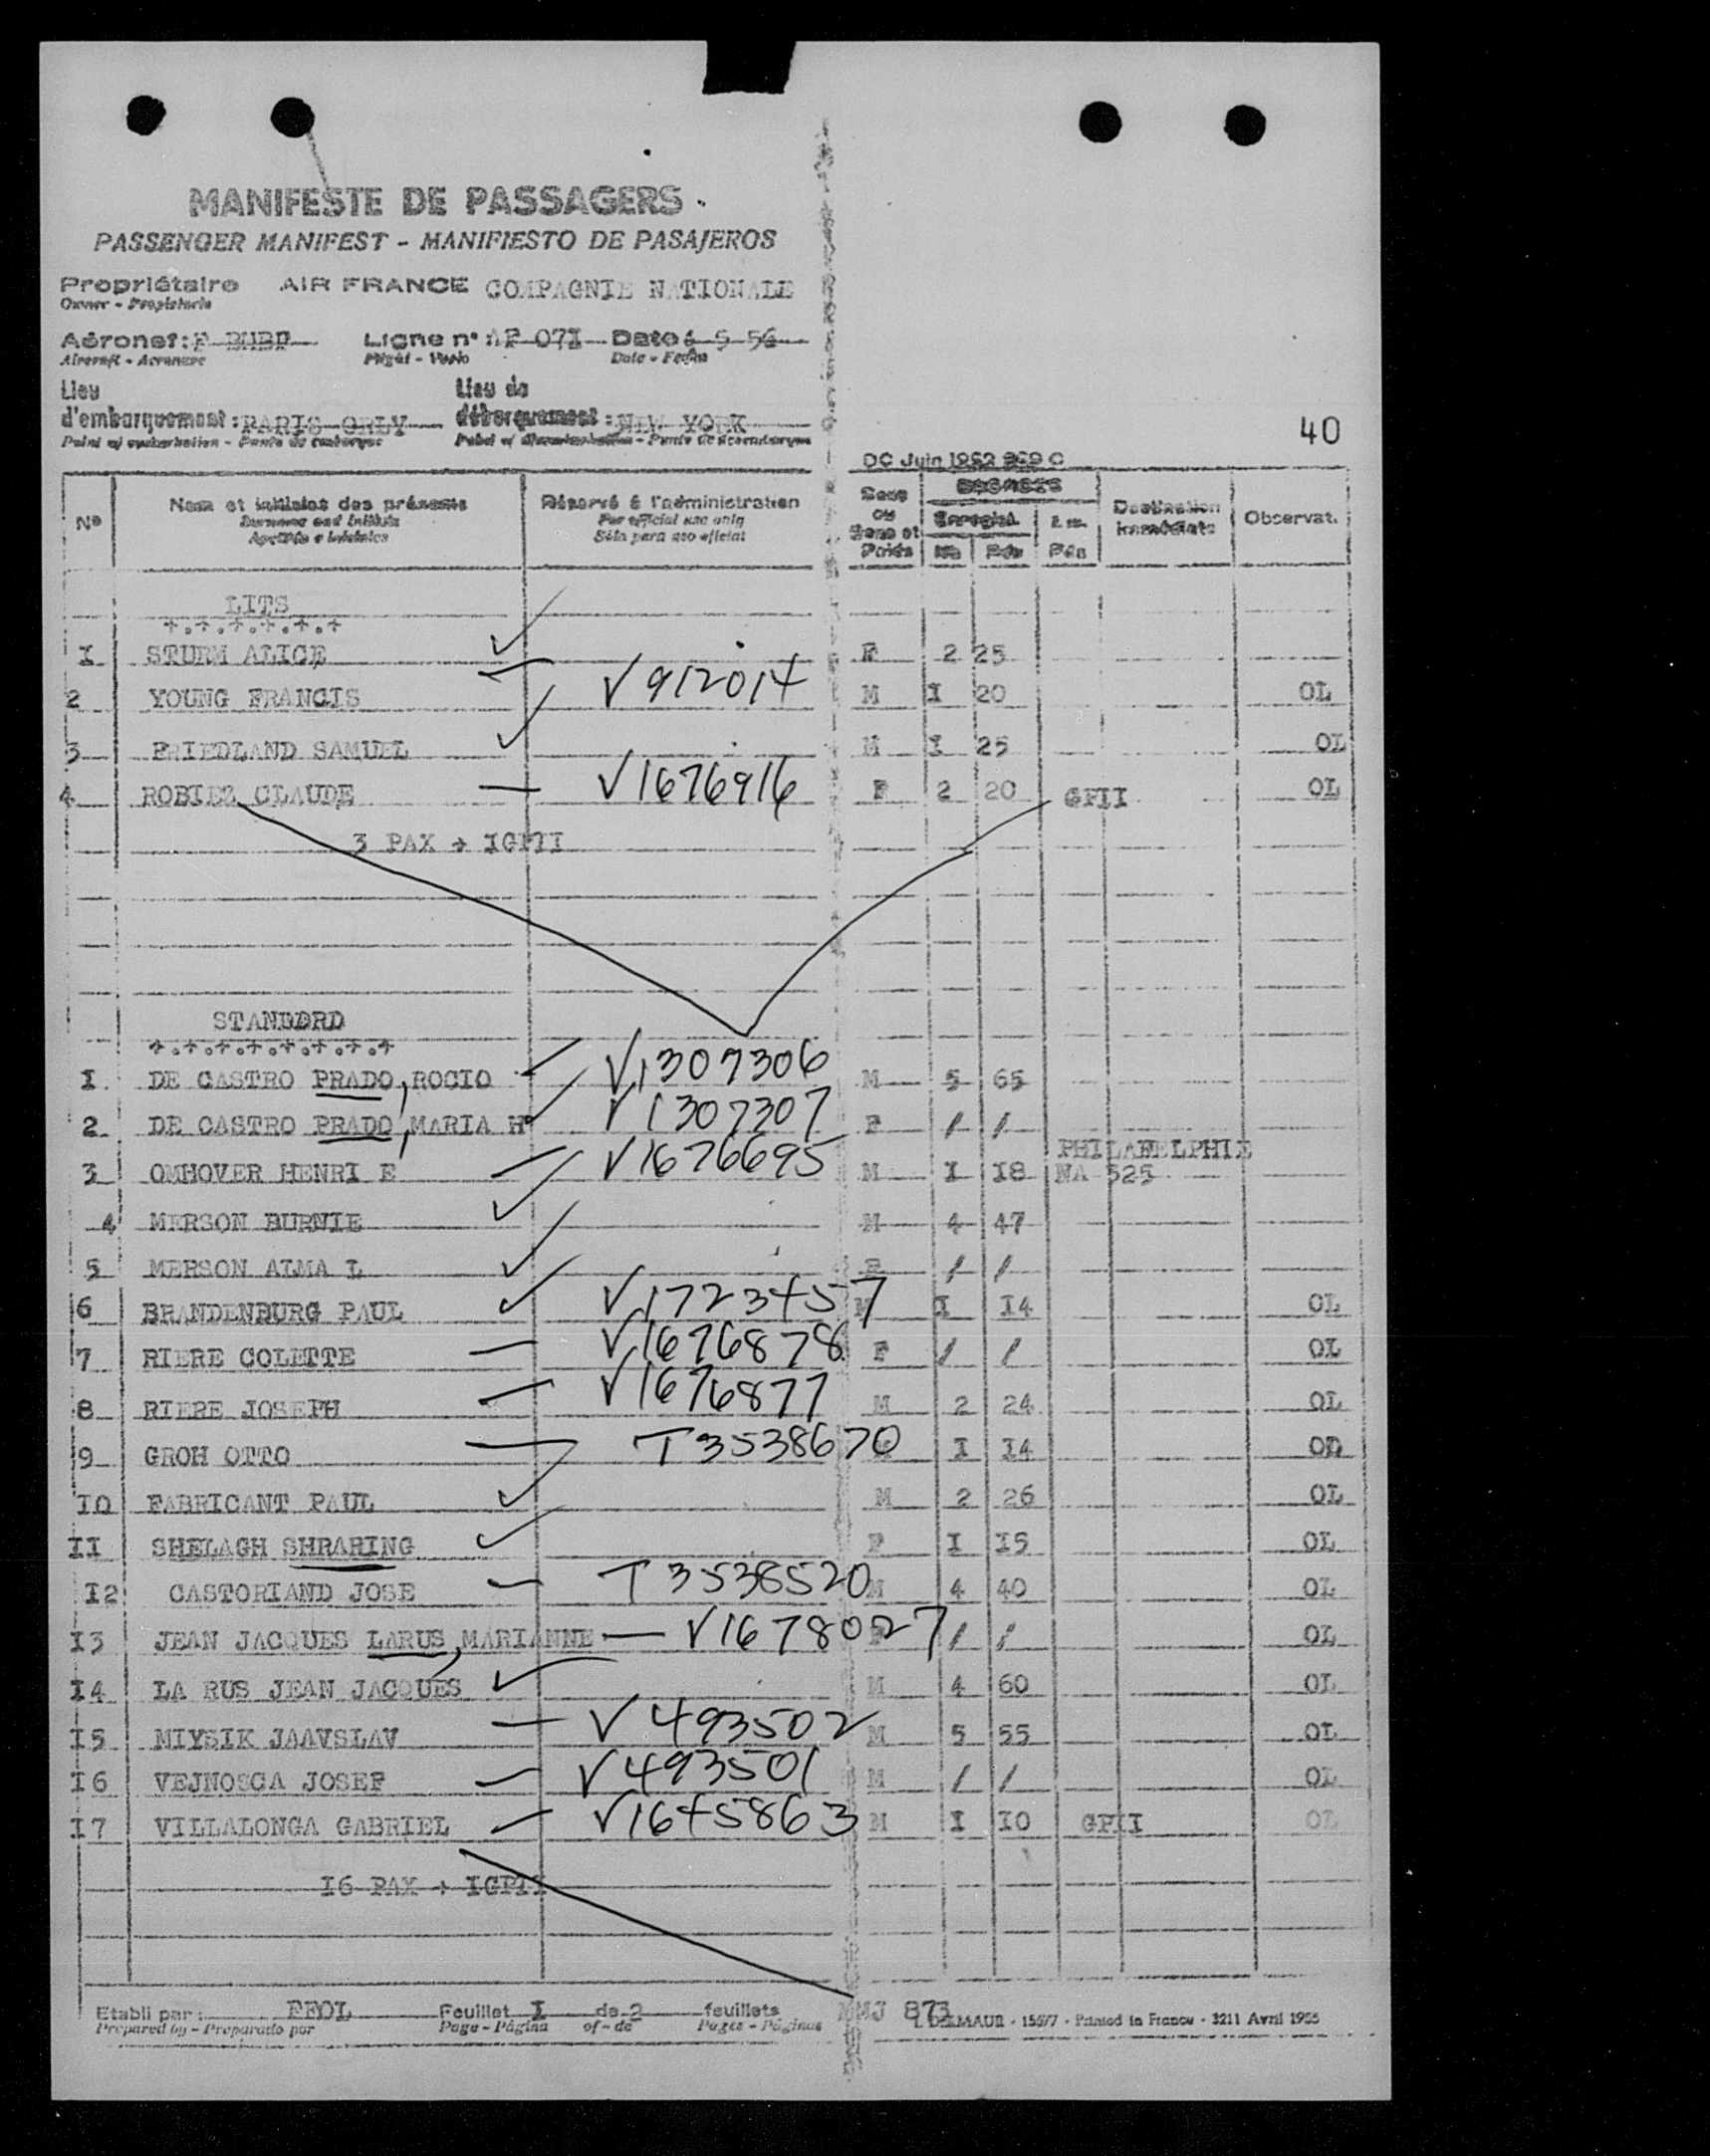 MANIFESTE DE PASSAGERS
PASSENGER MANIFEST - MANIFIESTO DE PASAJEROS
Propriétaire AIR FRANCE COMPAGNIE NATIONALE
Owner - Propietario
Aéronef: F BHBP Ligne n° AF 07I Date 6 5 56
Aircraft - Aeronave Flight - Vuelo Date - Fecha
Lieu d'embarquement: PARIS ORLY Lieu de débarquement: NEW YORK
40
DC Juin 1952 969 C
N° Nom et initiales des présents Réservé à l'administration Sexe ou Sexe et Poids BAGAGES Destination Observat.
Surname and initials For official use only Enregist.
Apellido e iniciales Sólo para uso oficial Nb Pds Pds
LITS
+.+.+.+.+.+
I STURM ALICE F 2 25
2 YOUNG FRANCIS V912014 M I 20 OL
3 FRIEDLAND SAMUEL M I 25 OL
4 ROBIEZ CLAUDE V1676916 F 2 20 GPII OL
3 PAX + IGPII
STANDDRD
+.+.+.+.+.+.+.+
I DE CASTRO PRADO, ROCIO V1307306 M 5 65
2 DE CASTRO PRADO, MARIA H° V1307307 F / /
3 OMHOVER HENRI E V1676695 M I I8 PHILADELPHIE NA 525
4 MERSON BURNIE M 4 47
5 MERSON ALMA L F / /
6 BRANDENBURG PAUL V1723457 M I I4 OL
7 RIERE COLETTE V1676878 F / / OL
8 RIERE JOSEPH V1676877 M 2 24 OL
9 GROH OTTO T3538670 I I4 OL
IO FABRICANT PAUL M 2 26 OL
II SHELAGH SHRARING F I I5 OL
I2 CASTORIAND JOSE T3538520 M 4 40 OL
I3 JEAN JACQUES LARUS, MARIANNE V1678027 F / / OL
I4 LA RUS JEAN JACQUES M 4 60 OL
I5 MIYSIK JAAVSLAV V493502 M 5 55 OL
I6 VEJNOSCA JOSEF V493501 M / / OL
I7 VILLALONGA GABRIEL V1645863 M I IO GPII OL
I6 PAX + IGPII
Etabli par: Feuillet I de 2 feuillets 873 MAUR - 15677 - Printed in France - 3211 Avril 1955
Prepared by - Preparado por Page - Página of - de Pages - Páginas